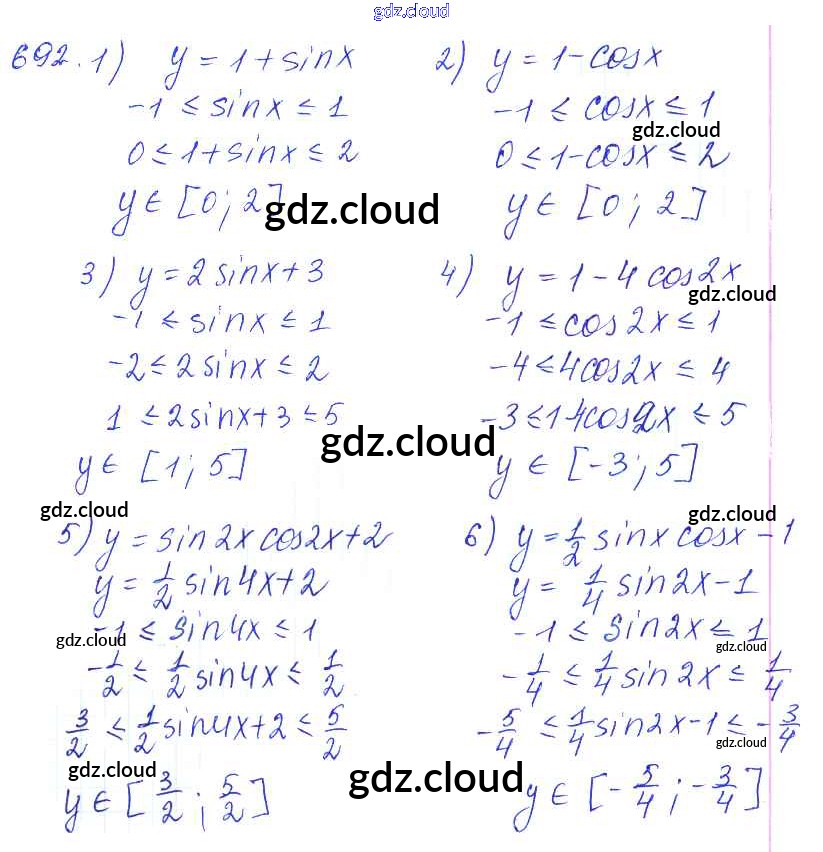 gdz.cloud
692. 1) y = 1 + sinx
-1 ≤ sinx ≤ 1
0 ≤ 1 + sinx ≤ 2
y ∈ [0; 2]
gdz.cloud
2) y = 1 - cosx
-1 ≤ cosx ≤ 1
gdz.cloud
0 ≤ 1 - cosx ≤ 2
y ∈ [0; 2]
3) y = 2 sinx + 3
-1 ≤ sinx ≤ 1
-2 ≤ 2 sinx ≤ 2
1 ≤ 2sinx + 3 ≤ 5
gdz.cloud
y ∈ [1; 5]
gdz.cloud
4) y = 1 - 4 cos2x
gdz.cloud
-1 ≤ cos2x ≤ 1
-4 ≤ 4cos2x ≤ 4
-3 ≤ 1-4cos2x ≤ 5
y ∈ [-3; 5]
gdz.cloud
5) y = sin2x cos2x + 2
y = 1/2 sin4x + 2
-1 ≤ sin4x ≤ 1
gdz.cloud
-1/2 ≤ 1/2 sin4x ≤ 1/2
3/2 ≤ 1/2 sin4x + 2 ≤ 5/2
gdz.cloud
y ∈ [3/2; 5/2]
gdz.cloud
6) y = 1/2 sinx cosx - 1
y = 1/4 sin2x - 1
-1 ≤ sin2x ≤ 1
gdz.cloud
-1/4 ≤ 1/4 sin2x ≤ 1/4
-5/4 ≤ 1/4 sin2x - 1 ≤ -3/4
gdz.cloud
y ∈ [-5/4; -3/4]